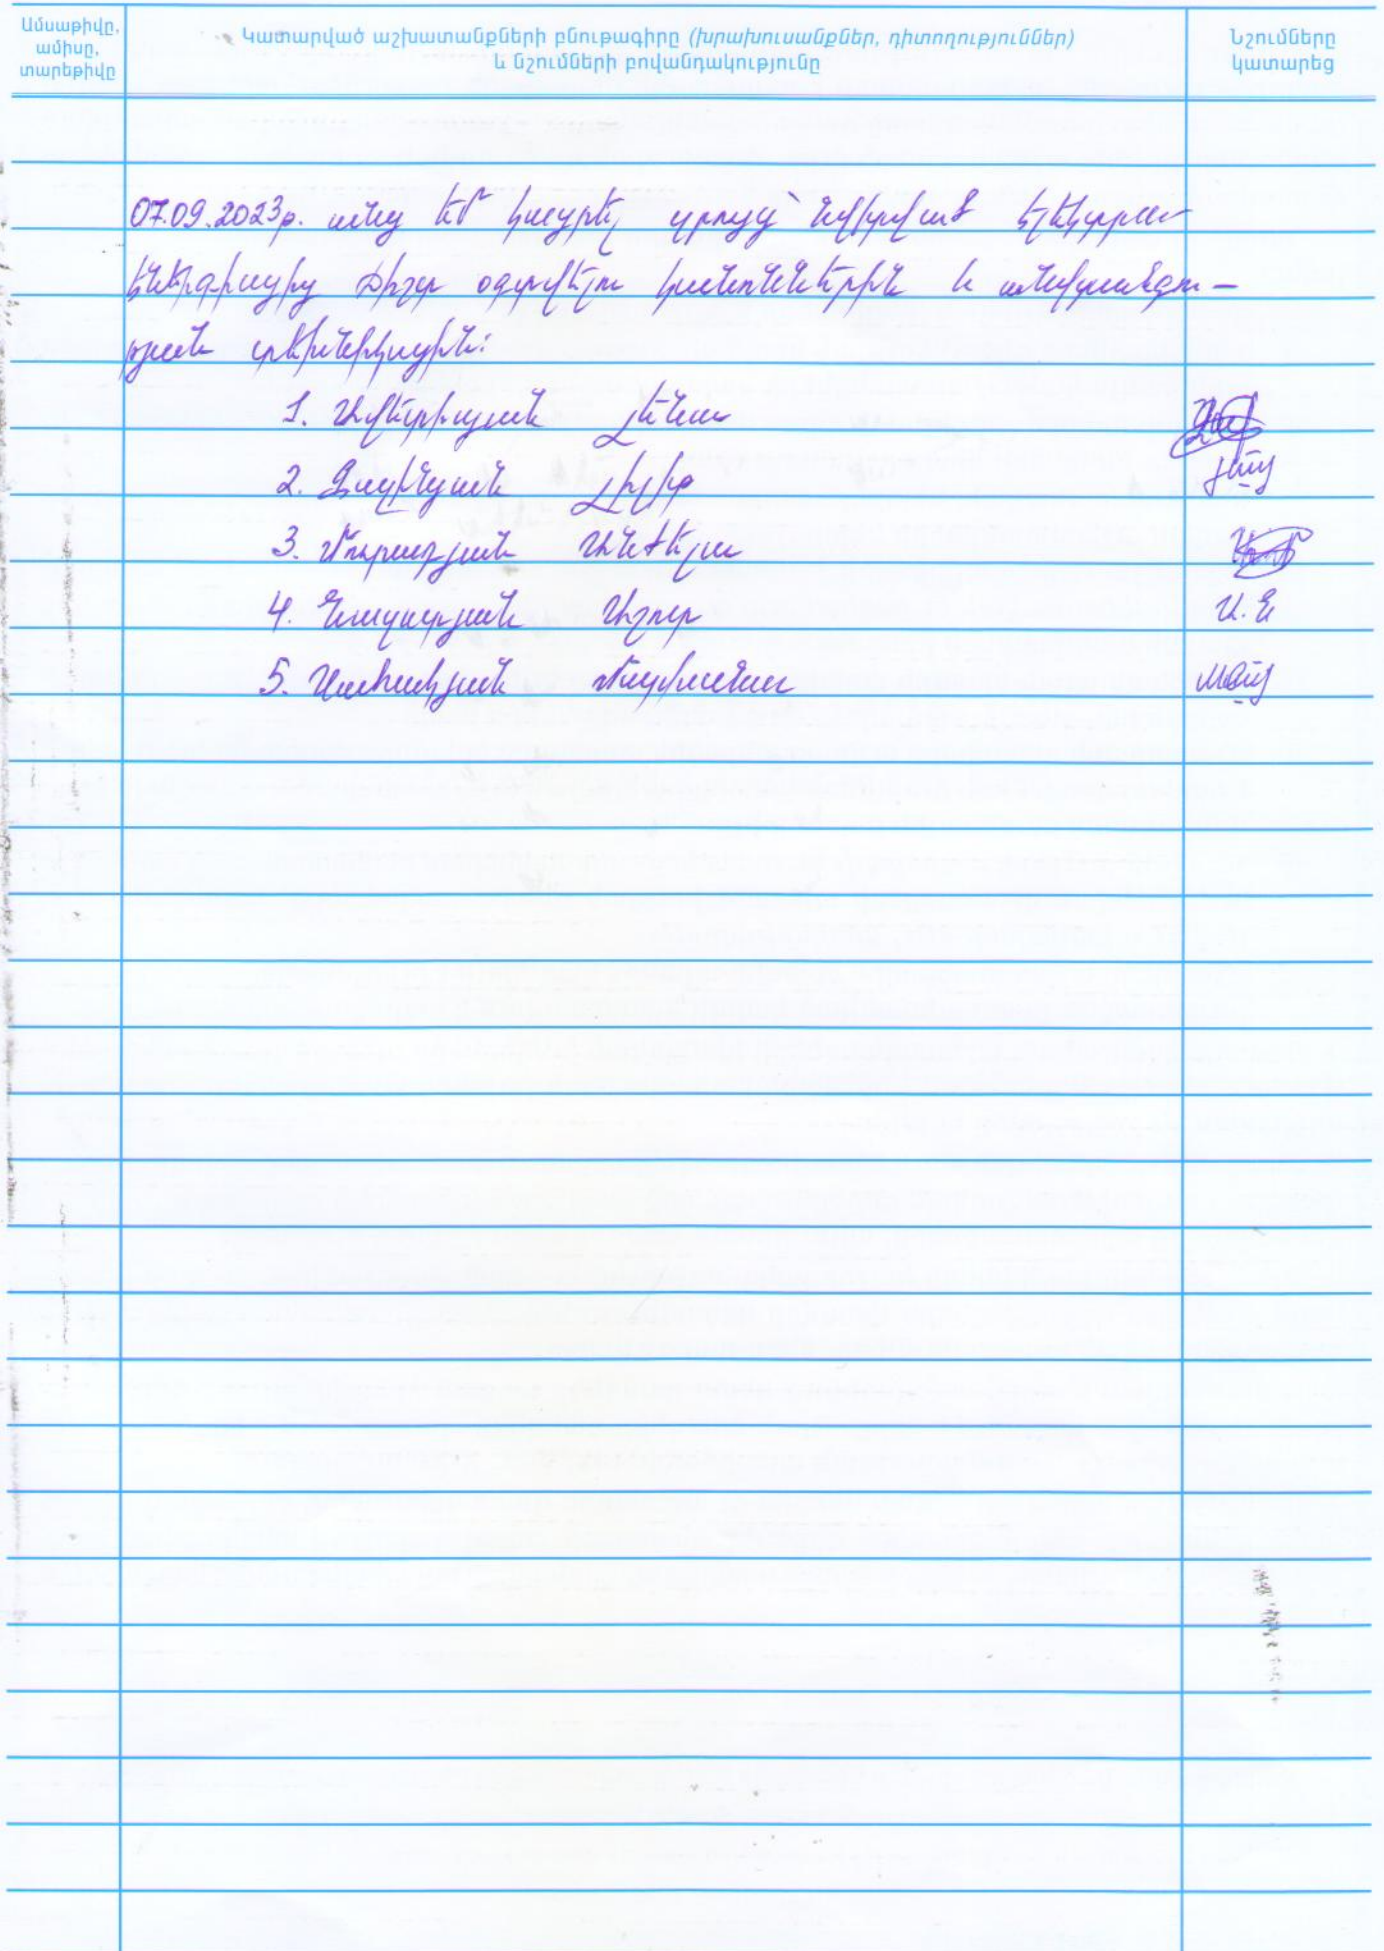 Ամսաթիվը,
ամիսը,
տարեթիվը
Կատարված աշխատանքների բնութագիրը (խրախուսանքներ, դիտողություններ)
և նշումների բովանդակությունը
Նշումները
կատարեց
07.09.2023թ. անց եմ կացրել զրույց՝ նվիրված էլեկտրա
էներգիայից ճիշտ օգտվելու կանոններին և անվտանգու –
թյան տեխնիկային:
1. Ավետիսյան Լենա
2. Գալինյան Լիլիթ
3. Մուրադյան Անժելա
4. Նազարյան Աշոտ
Ա. Ն
5. Սահակյան Մարիանա